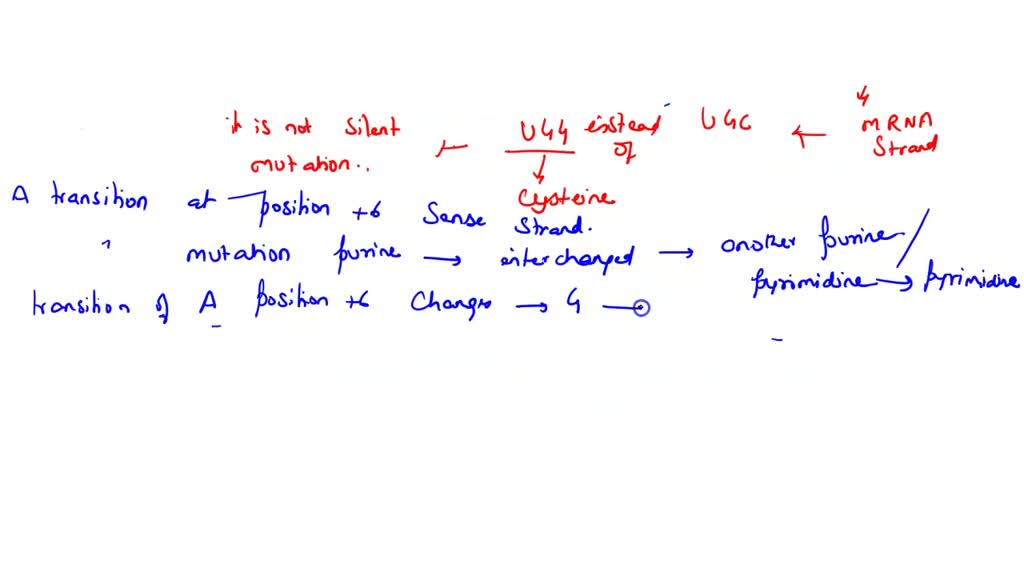 it is not silent ← UGG instead of UGC ← mRNA Strand
mutation..
Cysteine
A transition at position +6 Sense Strand.
mutation purine → interchanged → another purine /
pyrimidine → pyrimidine
transition of A position +6 Changes → G —